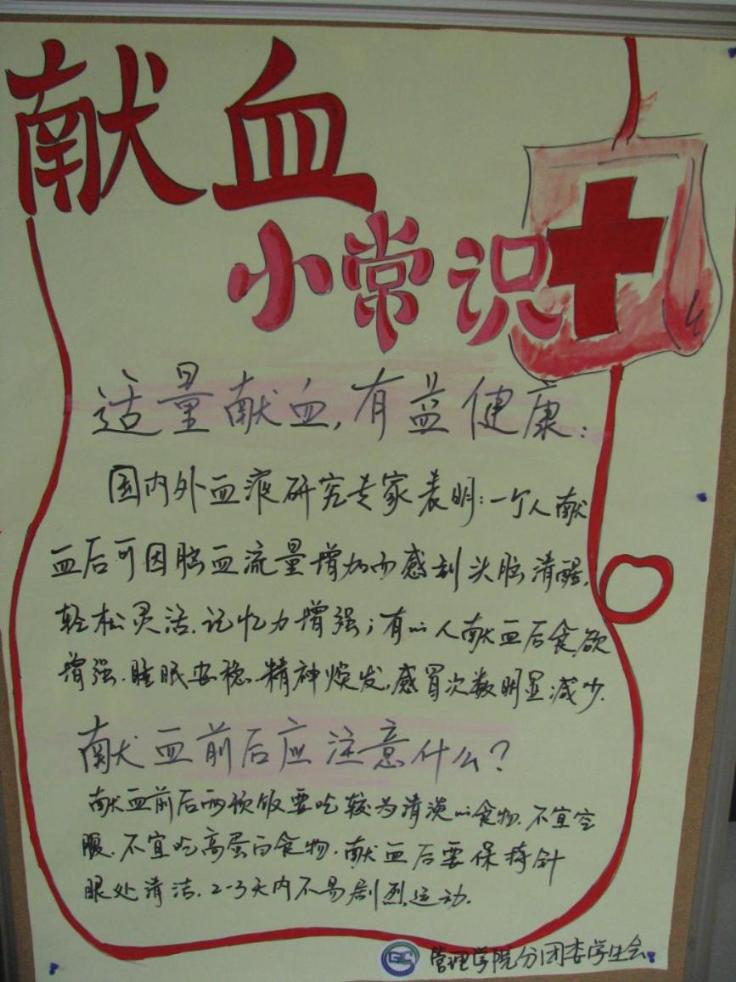 献血
小常识
适量献血,有益健康:
国内外血液研究专家表明:一个人献
血后可因脑血流量增加而感到头脑清醒,
轻松灵活.记忆力增强;有的人献血后食欲
增强.睡眠安稳.精神焕发,感冒次数明显减少.
献血前后应注意什么?
献血前后两顿饭要吃较为清淡的食物.不宜空
腹.不宜吃高蛋白食物.献血后要保持针
眼处清洁.2-3天内不易剧烈运动.
管理学院分团委学生会